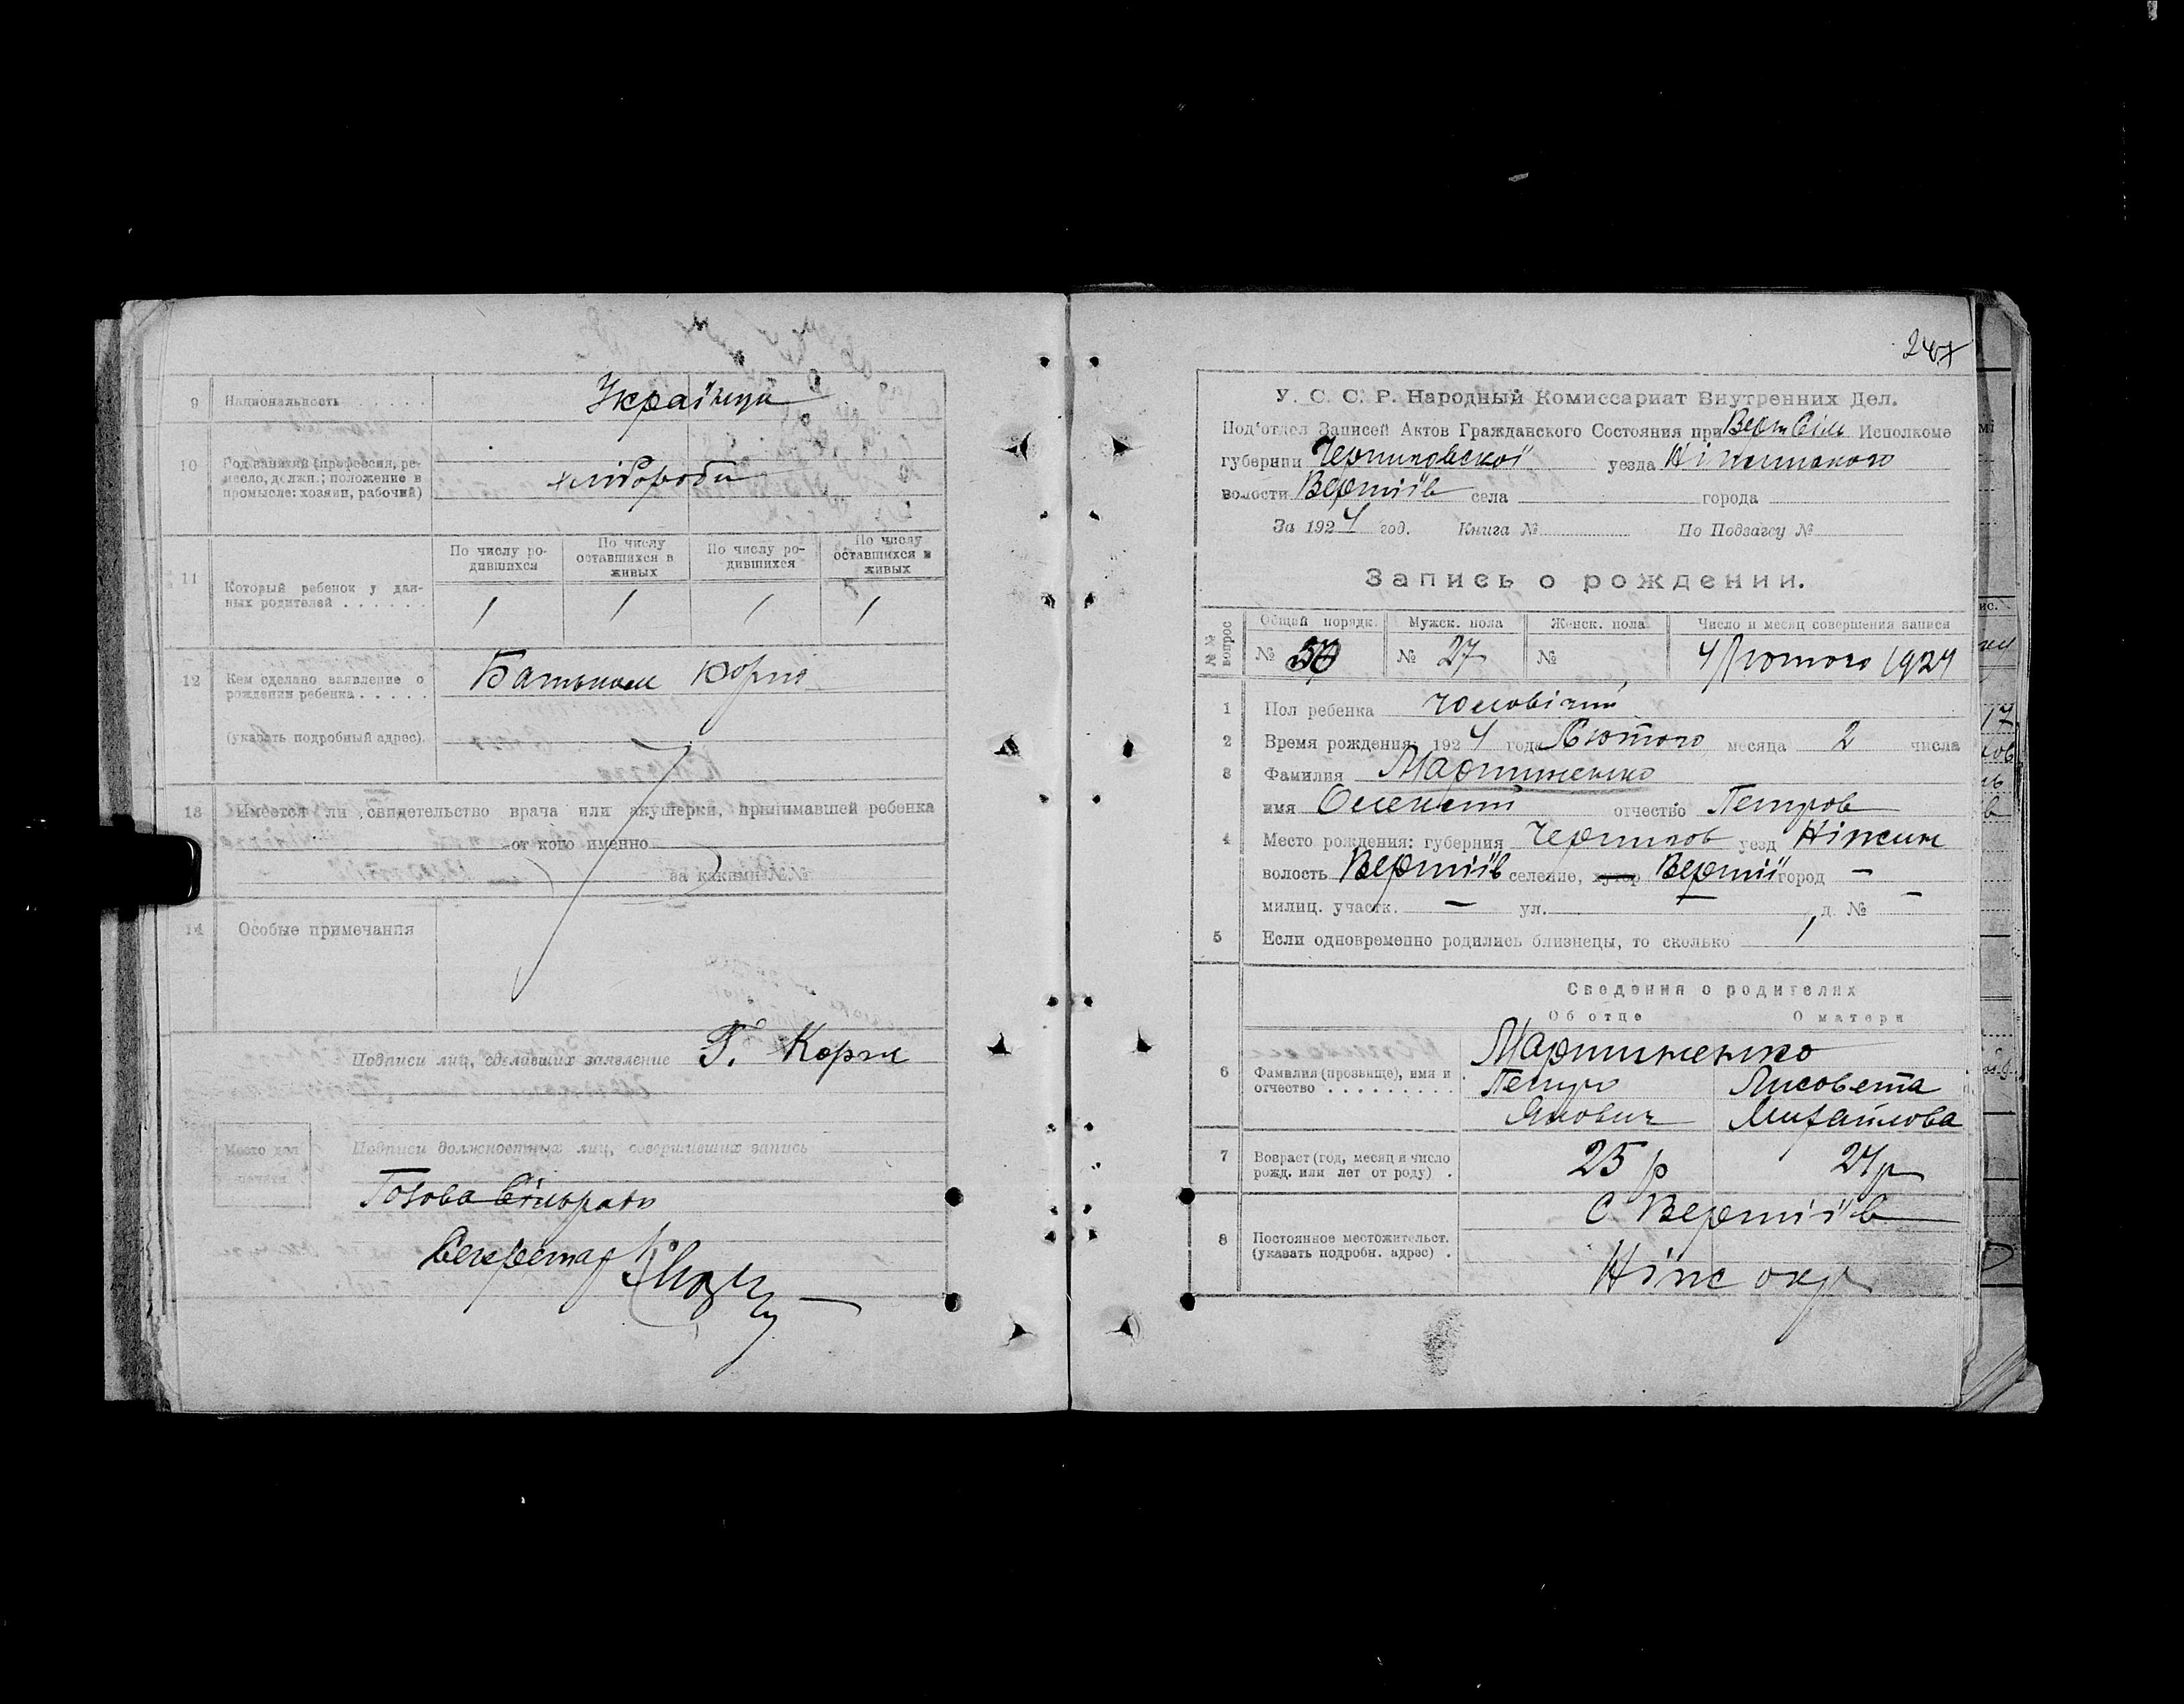 9 Национальность . . . . . . Українци
10 Род занятий (профессия, ре-
месло, должн.; положение в
промысле: хозяин, рабочий)
хлібороби
По числу ро-
дившихся
По числу
оставшихся в
живых
По числу ро-
дившихся
По числу
оставшихся в
живых
11 Который ребенок у дан-
ных родителей . . . . . .
1 1 1 1
12 Кем сделано заявление о
рождении ребенка . . . . .
Батьком
(указать подробный адрес).
13 Имеется ли свидетельство врача или акушерки, принимавшей ребенка
от кого именно
за какими №№
14 Особые примечания
Подписи лиц, сделавших заявление Корж
Место для
печати
Подписи должностных лиц, совершивших запись
Голова Сільради
Секретар
247
У. С. С. Р. Народный Комиссариат Внутренних Дел.
Под'отдел Записей Актов Гражданского Состояния при Верт Сіль Исполкоме
губернии Черниговской уезда Ніжинського
волости Вертіїв села города
За 1924 год. Книга № По Подзагсу №
Запись о рождении.
№№ вопрос
Общий порядк. Мужск. пола Женск. пола Число и месяц совершения записи
№ № 27 № 4 Лютого 1924
1 Пол ребенка чоловічий
2 Время рождения: 1924 года Лютого месяца 2 числа
3 Фамилия Мартиненко
имя Олексій отчество Петров
4 Место рождения: губерния Чернигов уезд Ніжин
волость Вертіїв селение, хутор Вертії город —
милиц. участк. — ул. д. № —
5 Если одновременно родились близнецы, то сколько 1
Сведения о родителях
Об отце О матери
6 Фамилия (прозвище), имя и
отчество . . . . . . . . .
Мартиненко
Петро Лисовета
Якович Михайлова
7 Возраст (год, месяц и число
рожд. или лет от роду) .
25 р 24 р
8 Постоянное местожительст.
(указать подробн. адрес) .
С Вертіїв
Ніж окр